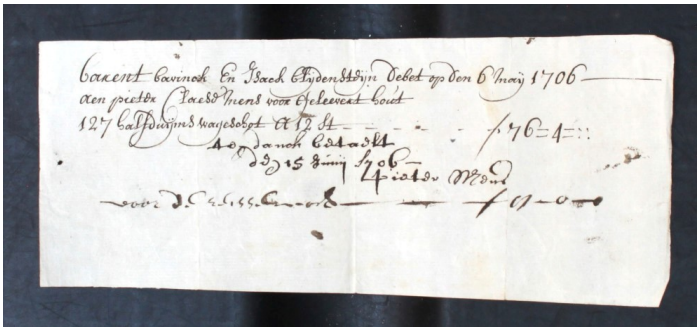 barent bavinck En Isack blijdensteijn debet op den 6 Maij 1706
aen pieter Claess Mens voor geleevert hout
127 halfduijms wageschot a 12 st - - - - f 76=4=::
danck betaelt
15 Junij 1706
pieter Mens
voor f